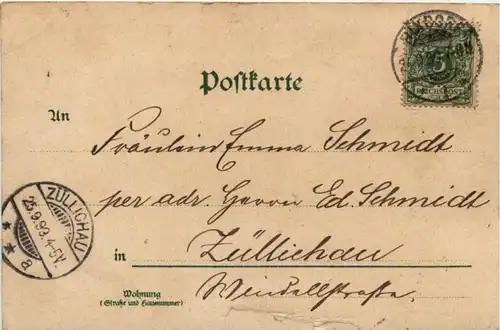 Postkarte
5
REICHSPOST
An
Fräulein Emma Schmidt
per adr. Herrn Ed. Schmidt
in Züllichau
Wendellstraße.
Wohnung
(Straße und Hausnummer)
ZÜLLICHAU
25.9.93.4-5V.
* * a